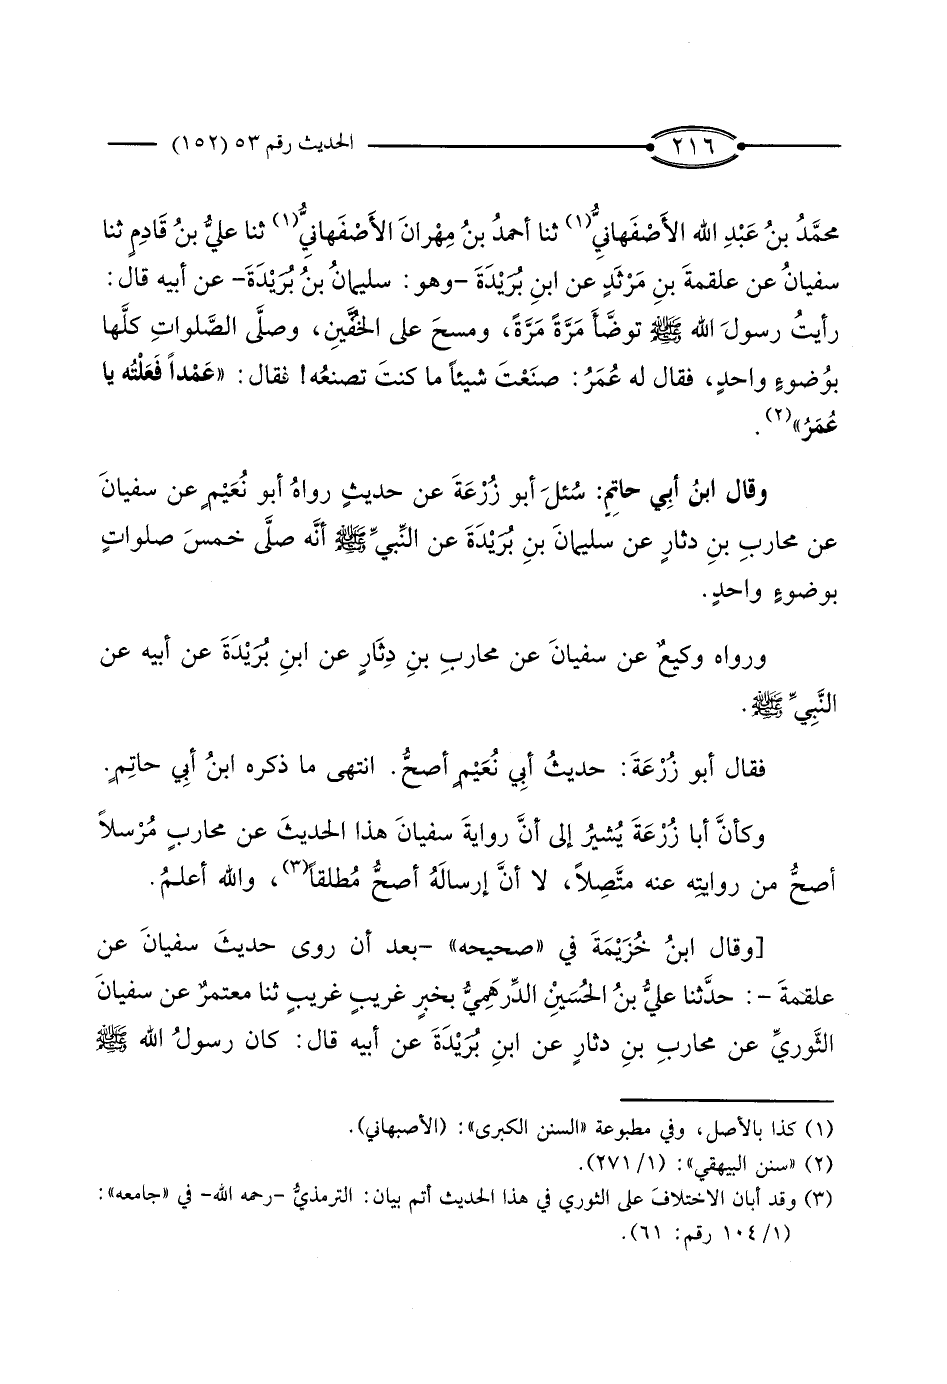 ٢١٦ الحديث رقم ٥٣ (١٥٢)
محمَّدُ بنُ عَبْدِ الله الأَصْفَهانيُّ(١) ثنا أحمدُ بنُ مِهْرانَ الأَصْفَهانيُّ(١) ثنا عليُّ بنُ قَادِمٍ ثنا
سفيانُ عن علقمةَ بنِ مَرْثَدٍ عن ابنِ بُرَيْدَةَ -وهو: سليمانُ بنُ بُرَيْدَةَ- عن أبيه قال:
رأيتُ رسولَ الله ﷺ توضَّأَ مَرَّةً مَرَّةً، ومسحَ على الخُفَّينِ، وصلَّى الصَّلواتِ كلَّها
بوُضوءٍ واحدٍ، فقال له عُمَرُ: صنَعْتَ شيئاً ما كنتَ تصنعُه! فقال: «عَمْداً فَعَلْتُه يا
عُمَرُ»(٢).
وقال ابنُ أبي حاتِمٍ: سُئلَ أبو زُرْعَةَ عن حديثٍ رواهُ أبو نُعَيْمٍ عن سفيانَ
عن محاربِ بنِ دثارٍ عن سليمانَ بنِ بُرَيْدَةَ عن النَّبيِّ ﷺ أنَّه صلَّى خمسَ صلواتٍ
بوضوءٍ واحدٍ.
ورواه وكيعٌ عن سفيانَ عن محاربِ بنِ دِثَارٍ عن ابنِ بُرَيْدَةَ عن أبيه عن
النَّبيِّ ﷺ.
فقال أبو زُرْعَةَ: حديثُ أبي نُعَيْمٍ أصحُّ. انتهى ما ذكره ابنُ أبي حاتِمٍ.
وكأنَّ أبا زُرْعَةَ يُشيرُ إلى أنَّ روايةَ سفيانَ هذا الحديثَ عن محاربٍ مُرْسلاً
أصحُّ من روايتِه عنه متَّصِلاً، لا أنَّ إرسالَهُ أصحُّ مُطلقاً(٣)، والله أعلمُ.
[وقال ابنُ خُزَيْمَةَ في «صحيحه» -بعد أن روى حديثَ سفيانَ عن
علقمةَ -: حدَّثنا عليُّ بنُ الحُسَيْنِ الدِّرهَمِيُّ بخبرٍ غريبٍ غريبٍ ثنا معتمرٌ عن سفيانَ
الثَّوريِّ عن محاربِ بنِ دثارٍ عن ابنِ بُرَيْدَةَ عن أبيه قال: كان رسولُ الله ﷺ
(١) كذا بالأصل، وفي مطبوعة «السنن الكبرى»: (الأصبهاني).
(٢) «سنن البيهقي»: (١/ ٢٧١).
(٣) وقد أبان الاختلافَ على الثوري في هذا الحديث أتم بيان: الترمذيُّ -رحمه الله- في «جامعه»:
(١/ ١٠٤ رقم: ٦١).